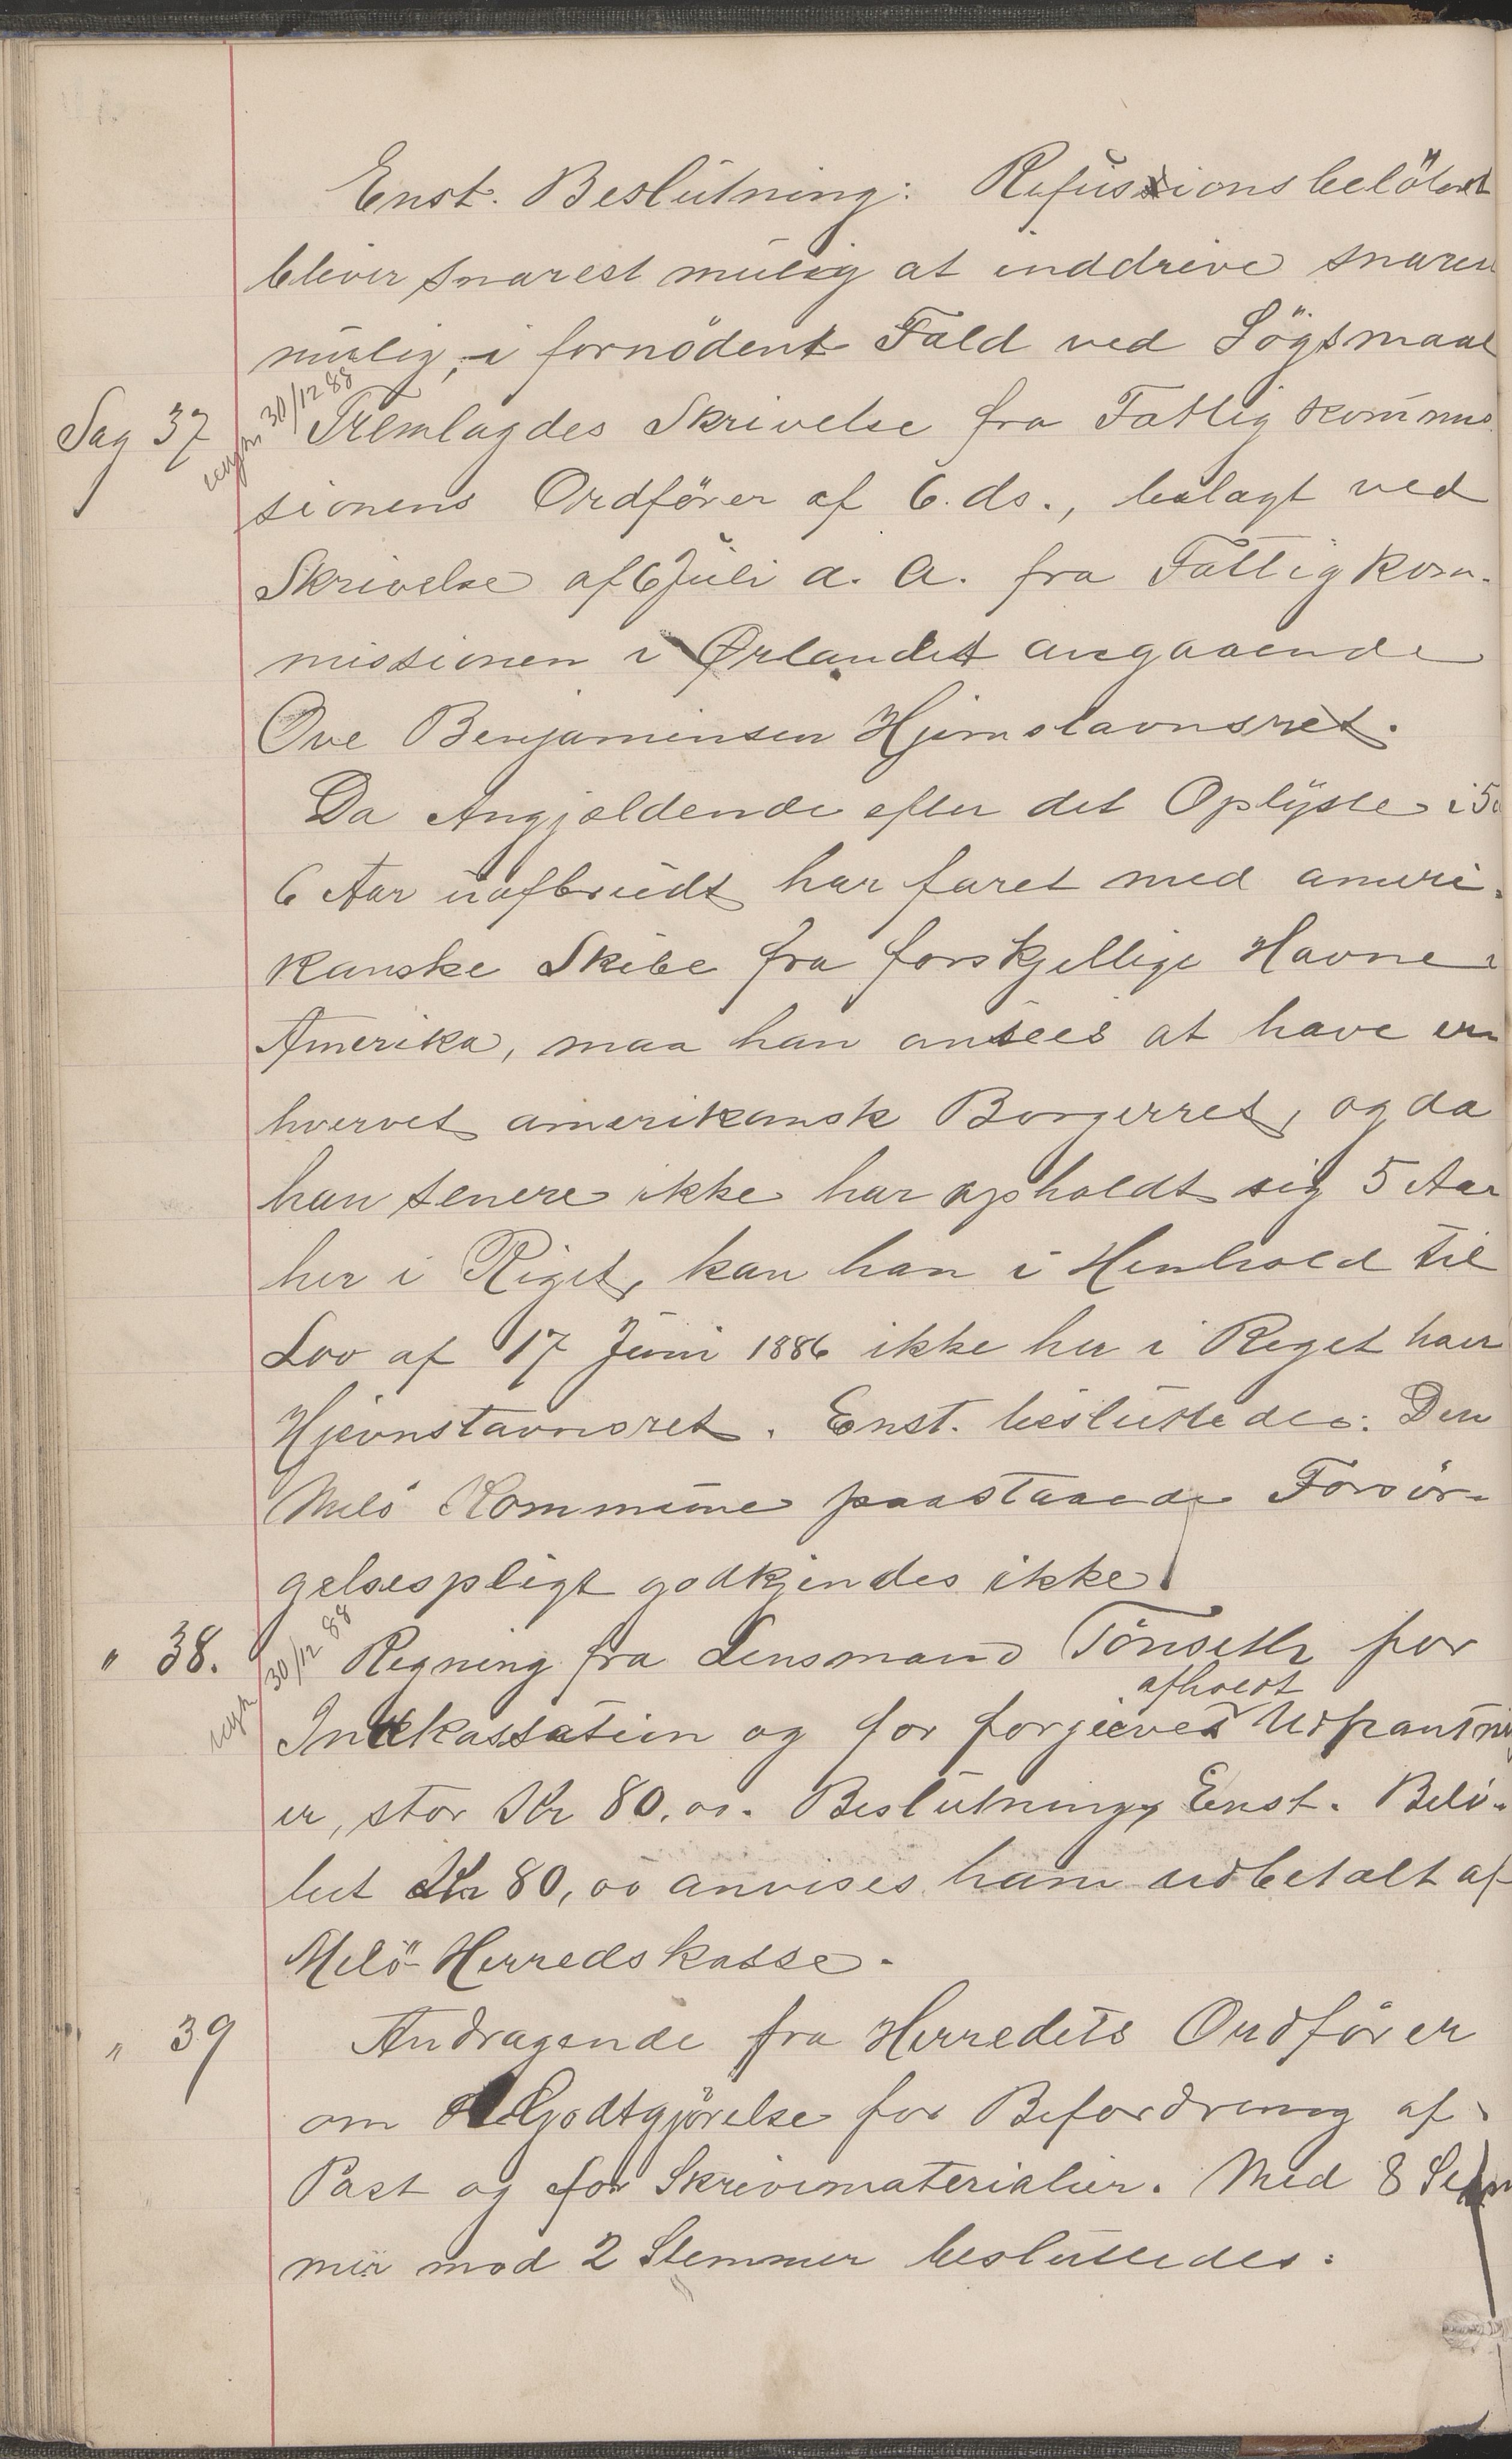 Enst. Beslutning: Refusionsbelöbet
bliver snarest mulig at inddrive snarest
mulig, i fornödent Fald ved Lögsmaal
Sag 37 30/12 88 Fremlagdes Skrivelse fra Fattigkommis
sionens Ordförer af 6. ds., belagt ved
Skrivelse af 6 Juli d. A. fra Fattigkom-
missionen i Ørlandet angaaende
Ove Benjaminsen Hjemstavnsret.
Da Angjældende efter det Oplyste i 5 a
6 Aar uafbrudt har faret med ameri-
kanske Skibe fra forskjellige Havne i
Amerika, maa han ansees at have er-
hvervet amerikansk Borgerret, og da
han senere ikke har opholdt sig 5 Aar
her i Riget, kan han i Henhold til
Lov af 17 Juni 1886 ikke her i Riget have
Hjemstavnsret. Enst. besluttedes: Den
Melö Kommune paastaaede Forsör-
gelsespligt godkjendes ikke.
" 38. 30/12 88 Regning fra Lensmand Tönseth for
afholdt
Inkkassation og for forgieves Udpantnin
er, stor Kr 80,00. Beslutning, Enst. Belö-
bet Kr 80,00 anvises ham udbetalt af
Melö Herredskasse.
" 39 Andragende fra Herredets Ordförer
om Godtgjörelse for Befordring af
Post og for Skrivematerialier. Med 8 Stem
mer mod 2 Stemmer besluttedes: